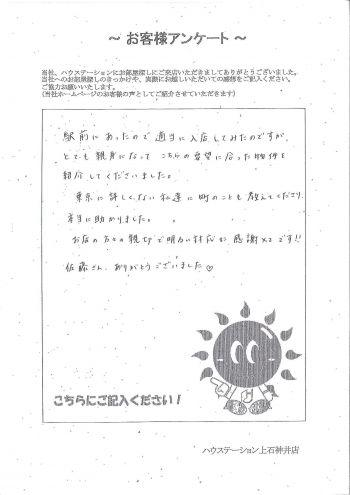 ～ お客様アンケート ～
当社、ハウステーションにお部屋探しにご来店いただきましてありがとうございました。
当社へのお部屋探しのきっかけや、実際にお越しいただいての感想をご記入ください。
ご協力お願いいたします。
(当社ホームページのお客様の声としてご紹介させていただきます)
駅前にあったので適当に入店してみたのですが、
とても親身になって こちらの要望に合った物件を
紹介してくださいました。
東京に詳しくない私達に町のことも教えてくださり
本当に助かりました。
お店の方々の親切で明るい対応が 感謝××です!!
佐藤さん、ありがとうございました♡
こちらにご記入ください!
ハウステーション上石神井店